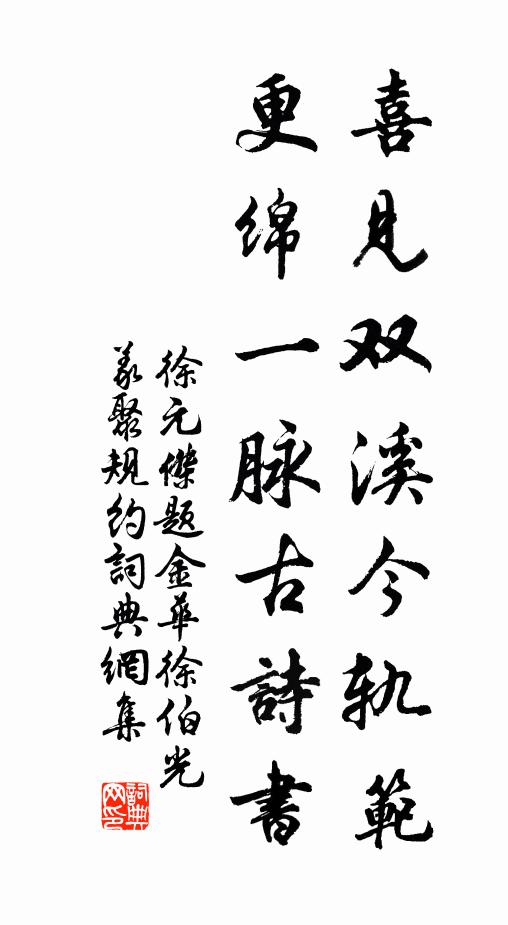 喜见双溪今轨範
更绵一脉古詩書
徐元傑题金華徐伯光
义聚规约詞典網集
詞典网印